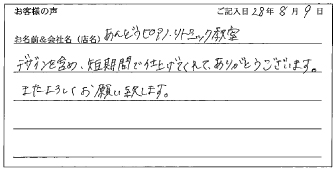 お客様の声 ご記入日 28年 8月 9日
お名前&会社名(店名) あんどうピアノ・リトミック教室
デザインを含め、短期間で仕上げてくれて、ありがとうございます。
またよろしくお願い致します。